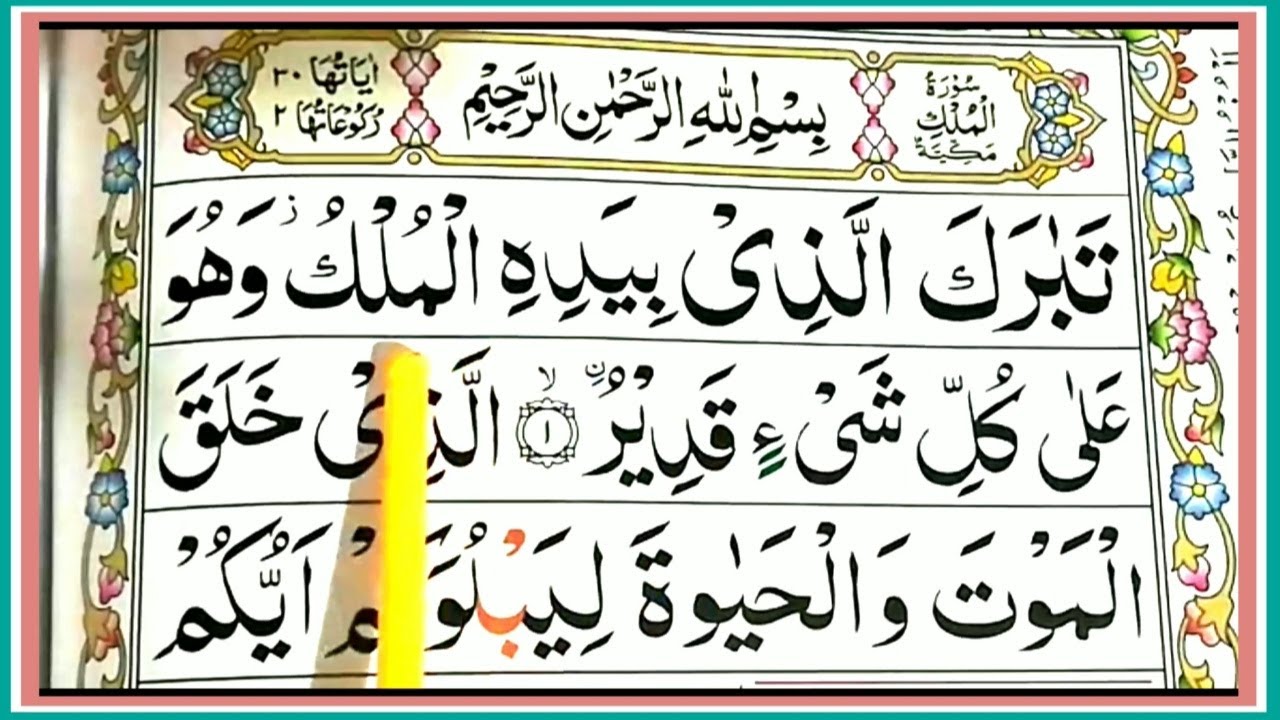 سُوْرَةُ الْمُلْكِ مَكِّيَّةٌ
بِسْمِ اللّٰهِ الرَّحْمٰنِ الرَّحِيْمِ
اٰيَاتُهَا ٣٠
رُكُوْعَاتُهَا ٢
تَبٰرَكَ الَّذِىْ بِيَدِهِ الْمُلْكُ ز وَهُوَ
عَلٰى كُلِّ شَىْءٍ قَدِيْرُ ۨ ۙ ١ الَّذِىْ خَلَقَ
الْمَوْتَ وَالْحَيٰوةَ لِيَبْلُوَكُمْ اَيُّكُمْ